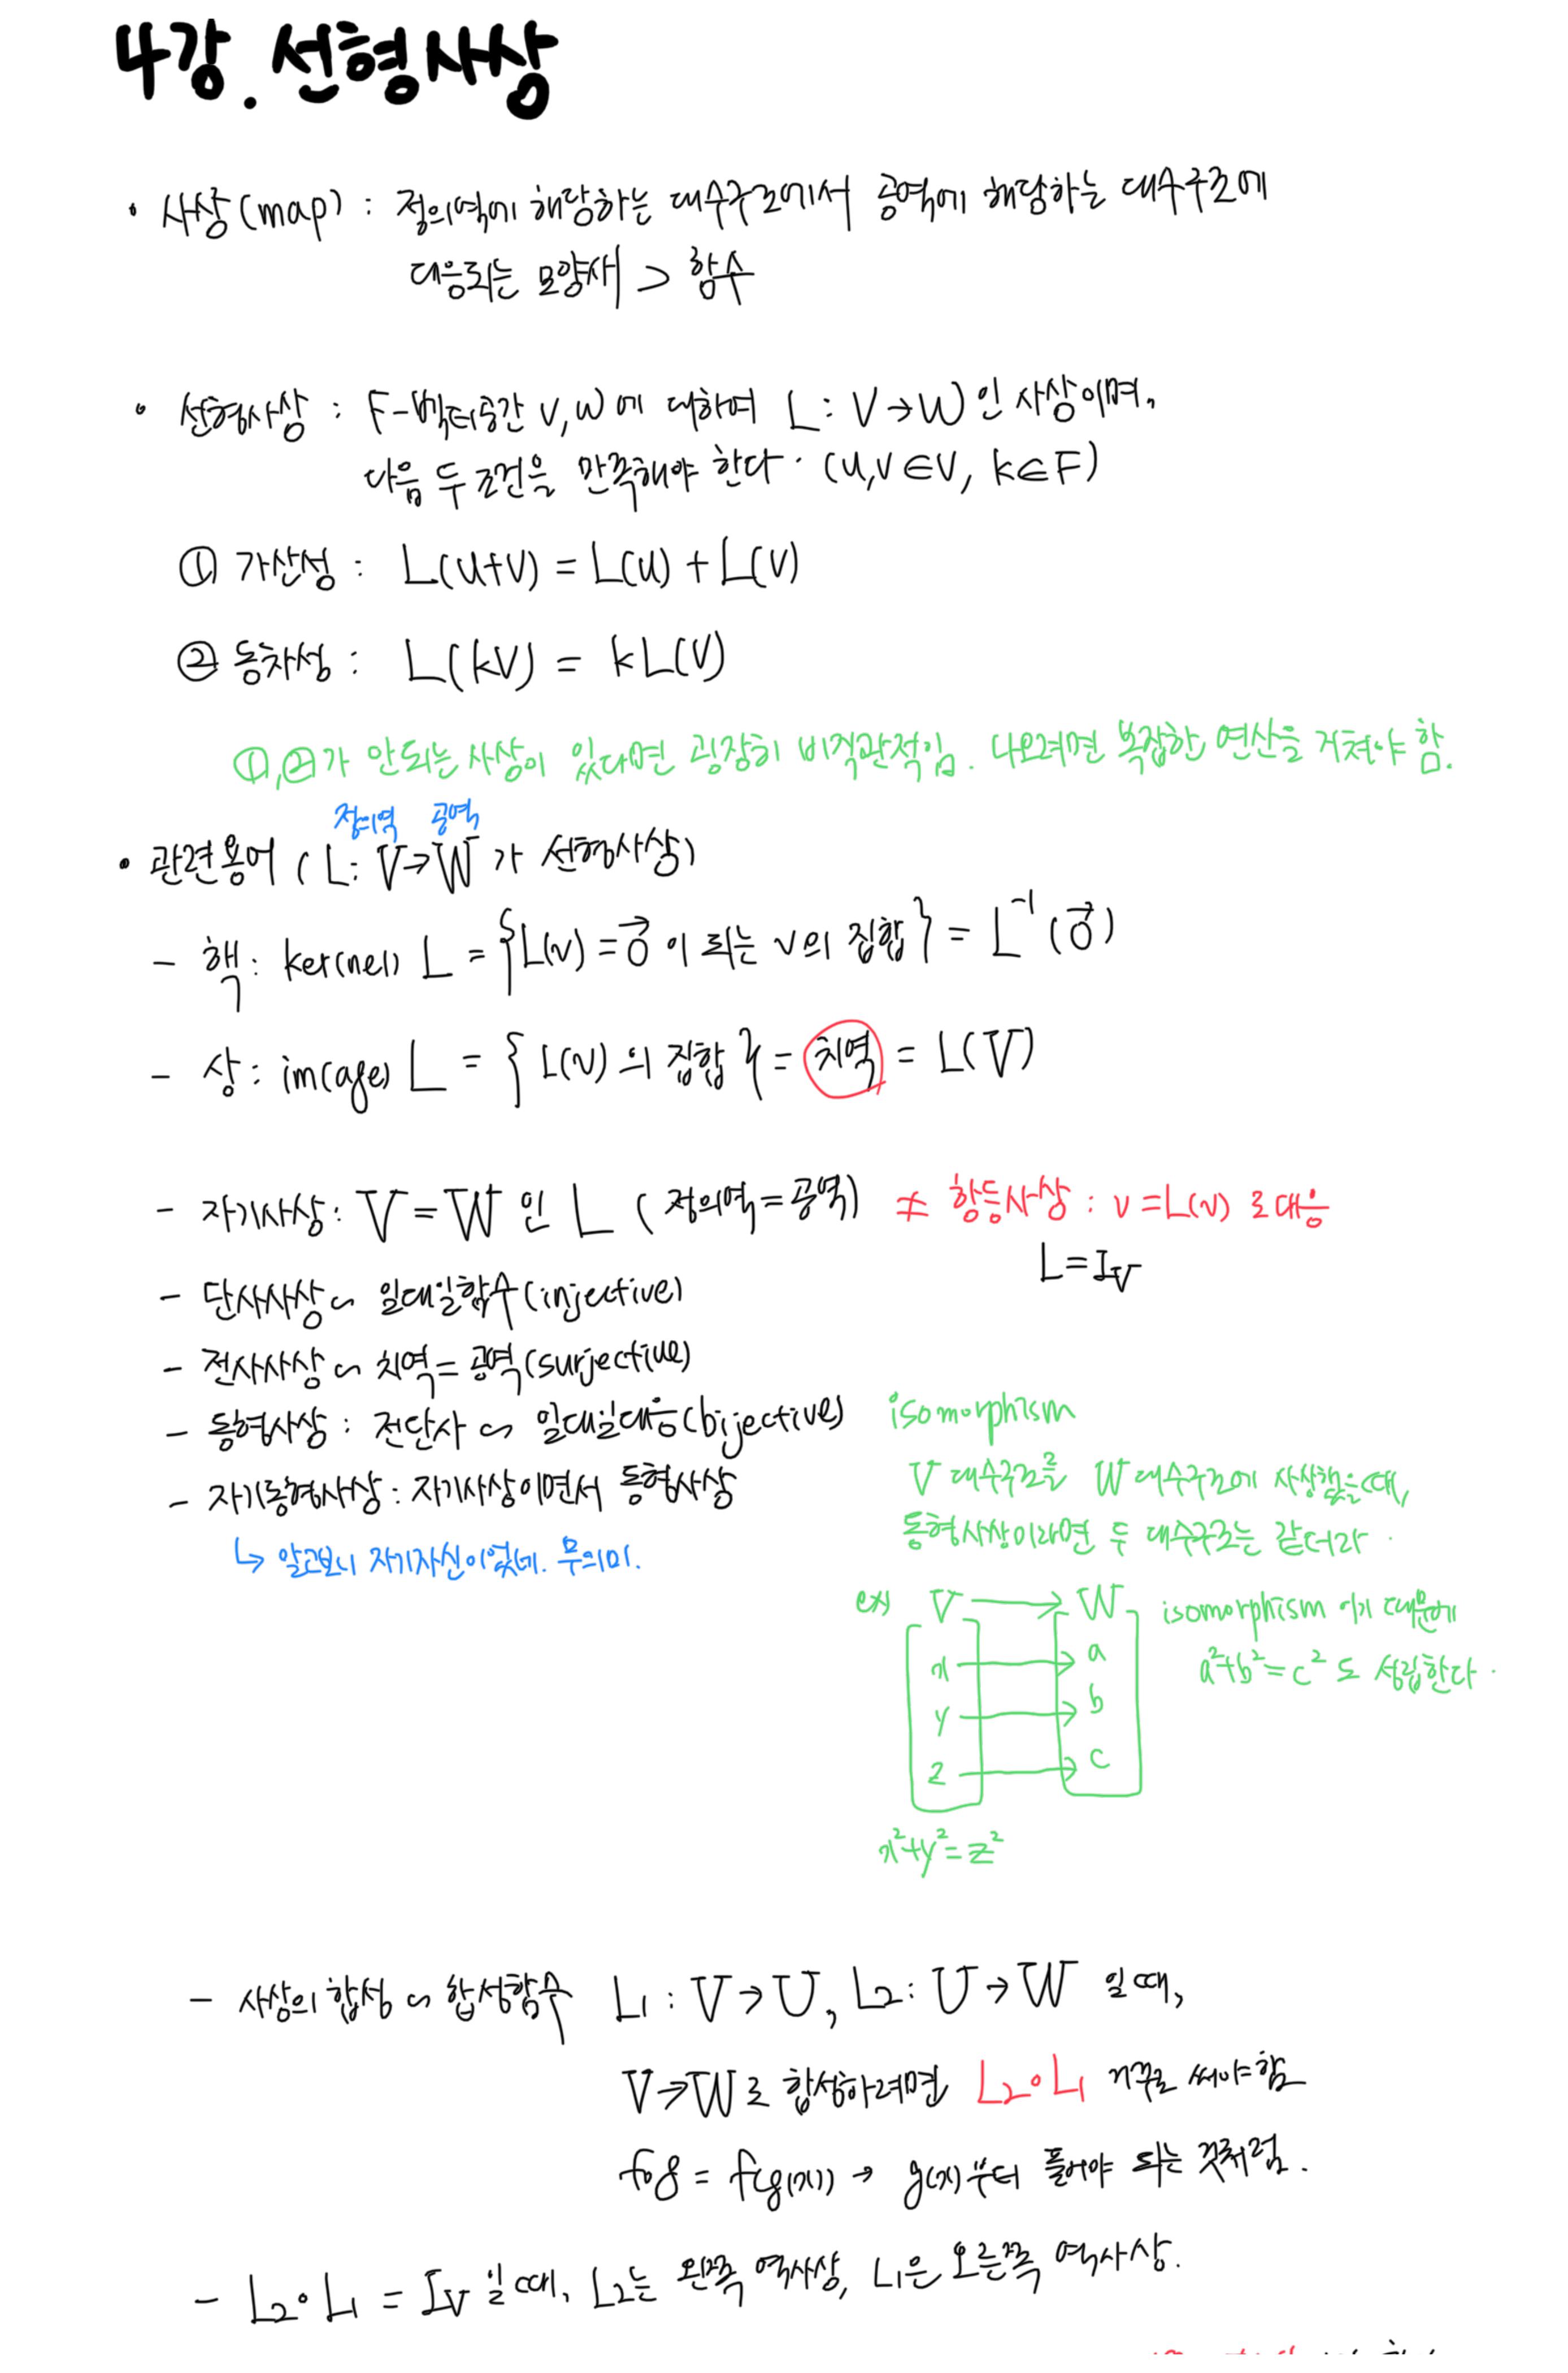 4강. 선형사상
• 사상(map) : 정의역에 해당하는 대수구조에서 공역에 해당하는 대수구조에
대응되는 모양새 ⊃ 함수
• 선형사상 : F-벡터공간 V, W에 대하여 L : V → W인 사상이며,
다음 두 조건을 만족해야 한다. (u,v∈V, k∈F)
① 가산성 : L(u+v) = L(u) + L(v)
② 동차성 : L(kv) = kL(v)
①,②가 안되는 사상이 있다면 굉장히 비직관적임. 나오려면 복잡한 연산을 거쳐야 함.
정의역 공역
• 관련용어 ( L: V→W가 선형사상)
- 핵: ker(nel) L = {L(v) = 0⃗ 이 되는 v의 집합} = L⁻¹(0⃗)
- 상: im(age) L = { L(v)의 집합 } = 치역 = L(V)
- 자기사상: V=W인 L (정의역=공역) ≠ 항등사상 : v = L(v)로 대응
L = I_V
- 단사사상 ~ 일대일함수(injective)
- 전사사상 ~ 치역=공역(surjective)
- 동형사상 : 전단사 ~ 일대일대응(bijective) isomorphism
V 대수구조를 W 대수구조에 사상했을때,
- 자기동형사상 : 자기사상이면서 동형사상
동형사상이라면 두 대수구조는 같더라.
↳ 알고보니 자기자신이었네. 무의미.
ex) V → W isomorphism 이기 때문에
x → a a²+b²=c² 도 성립한다.
y → b
z → c
x²+y²=z²
- 사상의 합성 ~ 합성함수 L₁ : V→U, L₂: U→W 일때,
V→W로 합성하려면 L₂∘L₁ 거꾸로 써야함
f∘g = f(g(x)) → g(x)부터 풀어야 되는 것처럼.
- L₂∘L₁ = I_V 일때, L₂는 왼쪽 역사상, L₁은 오른쪽 역사상.